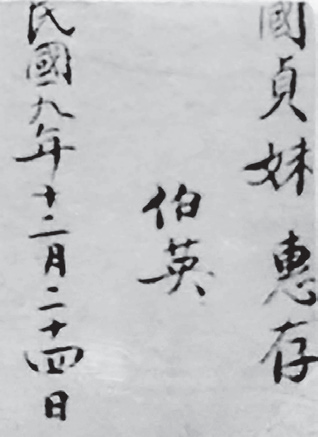 國貞妹惠存
伯英
民國九年十二月二十四日